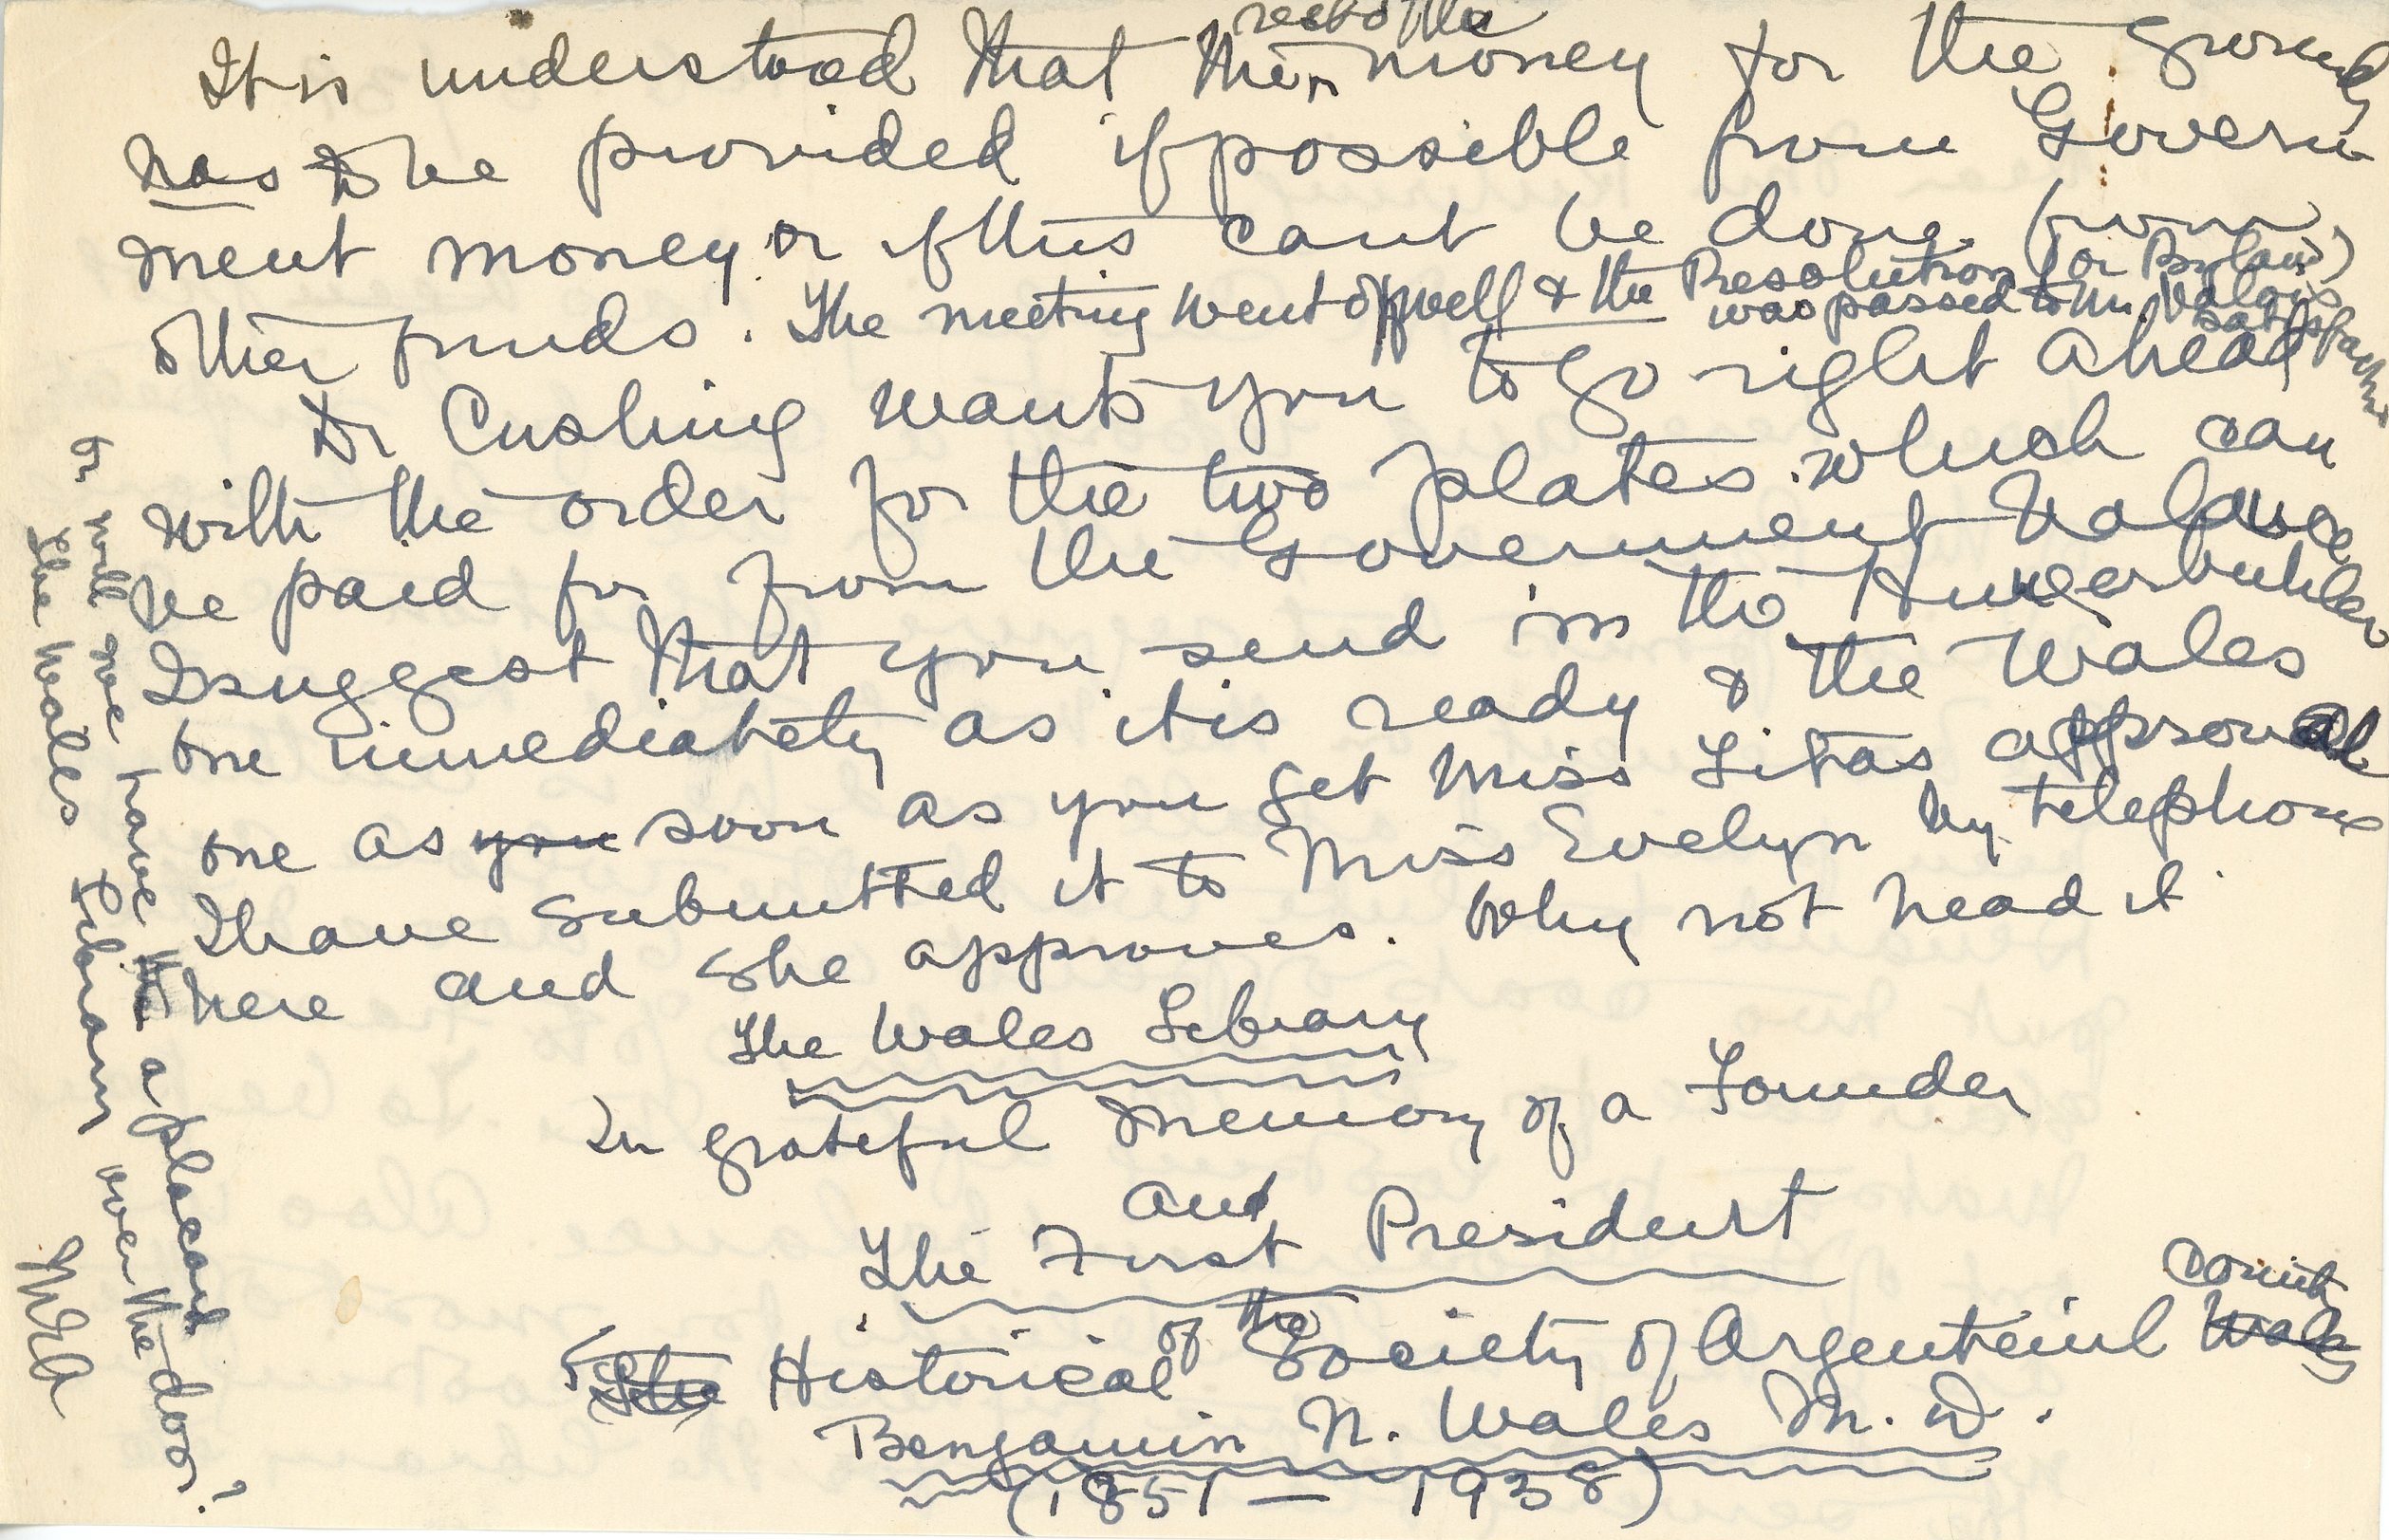 It is understood that the rest of the money for the grounds
has to be provided if possible from Govern
ment money or if this cant be done from
other funds. The meeting went off well & the Resolution (or Bylaw)
was passed to Mr. Wales satisfaction
Dr Cushing wants you to go right ahead
with the order for the two plates which can
be paid for from the Government balance
I suggest that you send in the Hungerbuhler
one immediately as it is ready & the Wales
one as you soon as you get Miss Litas approval
I have submitted it to Miss Evelyn by telephone
here and she approves. Why not head it
The Wales Library
In grateful memory of a Founder
and
The First President
of the
The Historical Society of Argenteuil County Wales
Benjamin N. Wales M. D.
(1851 — 1938)
or will we have the a placard
The Wales Library over the door?
MRA